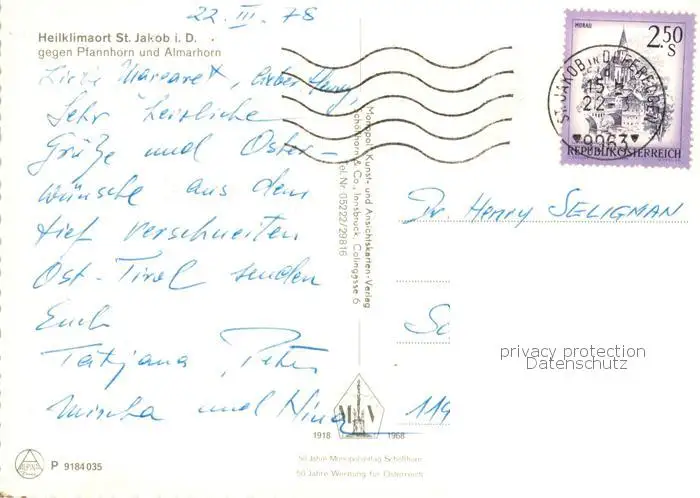 22. III. 78
Heilklimaort St. Jakob i. D.
gegen Pfannhorn und Almarhorn
Liebe Margaret, lieber Henry,
Sehr herzliche
Grüße und Oster-
wünsche aus dem
tief verschneiten
Ost-Tirol senden
Euch
Tatjana, Peter
Mischa und Nina
Monopol, Kunst- und Ansichtskarten-Verlag
Schöllhorn & Co., Innsbruck, Colingasse 6
Tel. Nr. 05222/29816
MORAU
2.50
S
REPUBLIK ÖSTERREICH
ST. JAKOB IN DEFEREGGEN
22
9963
Dr. Henry SELIGMAN
119
privacy protection
Datenschutz
M V
1918 1968
50 Jahre Monopolverlag Schöllhorn
50 Jahre Werbung für Österreich
P 9184035